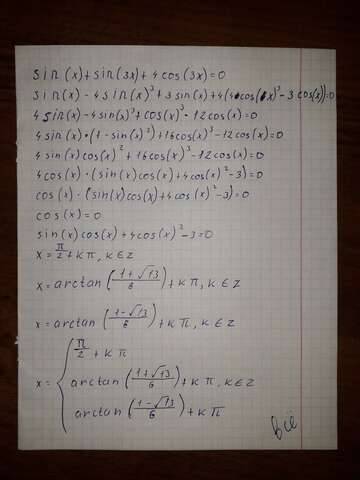 sin(x)+sin(3x)+4cos(3x)=0
sin(x)-4sin(x)³+3sin(x)+4(4cos(x)³-3cos(x))=0
4sin(x)-4sin(x)³+cos(x)³·12cos(x)=0
4sin(x)·(1-sin(x)²)+16cos(x)³-12cos(x)=0
4sin(x)cos(x)²+16cos(x)³-12cos(x)=0
4cos(x)·(sin(x)cos(x)+4cos(x)²-3)=0
cos(x)·(sin(x)cos(x)+4cos(x)²-3)=0
cos(x)=0
sin(x)cos(x)+4cos(x)²-3=0
x=π/2+kπ, k∈Z
x=arctan((1+√13)/6)+kπ, k∈Z
x=arctan((1-√13)/6)+kπ, k∈Z
π/2+kπ
x={ arctan((1+√13)/6)+kπ, k∈Z
arctan((1-√13)/6)+kπ
всё